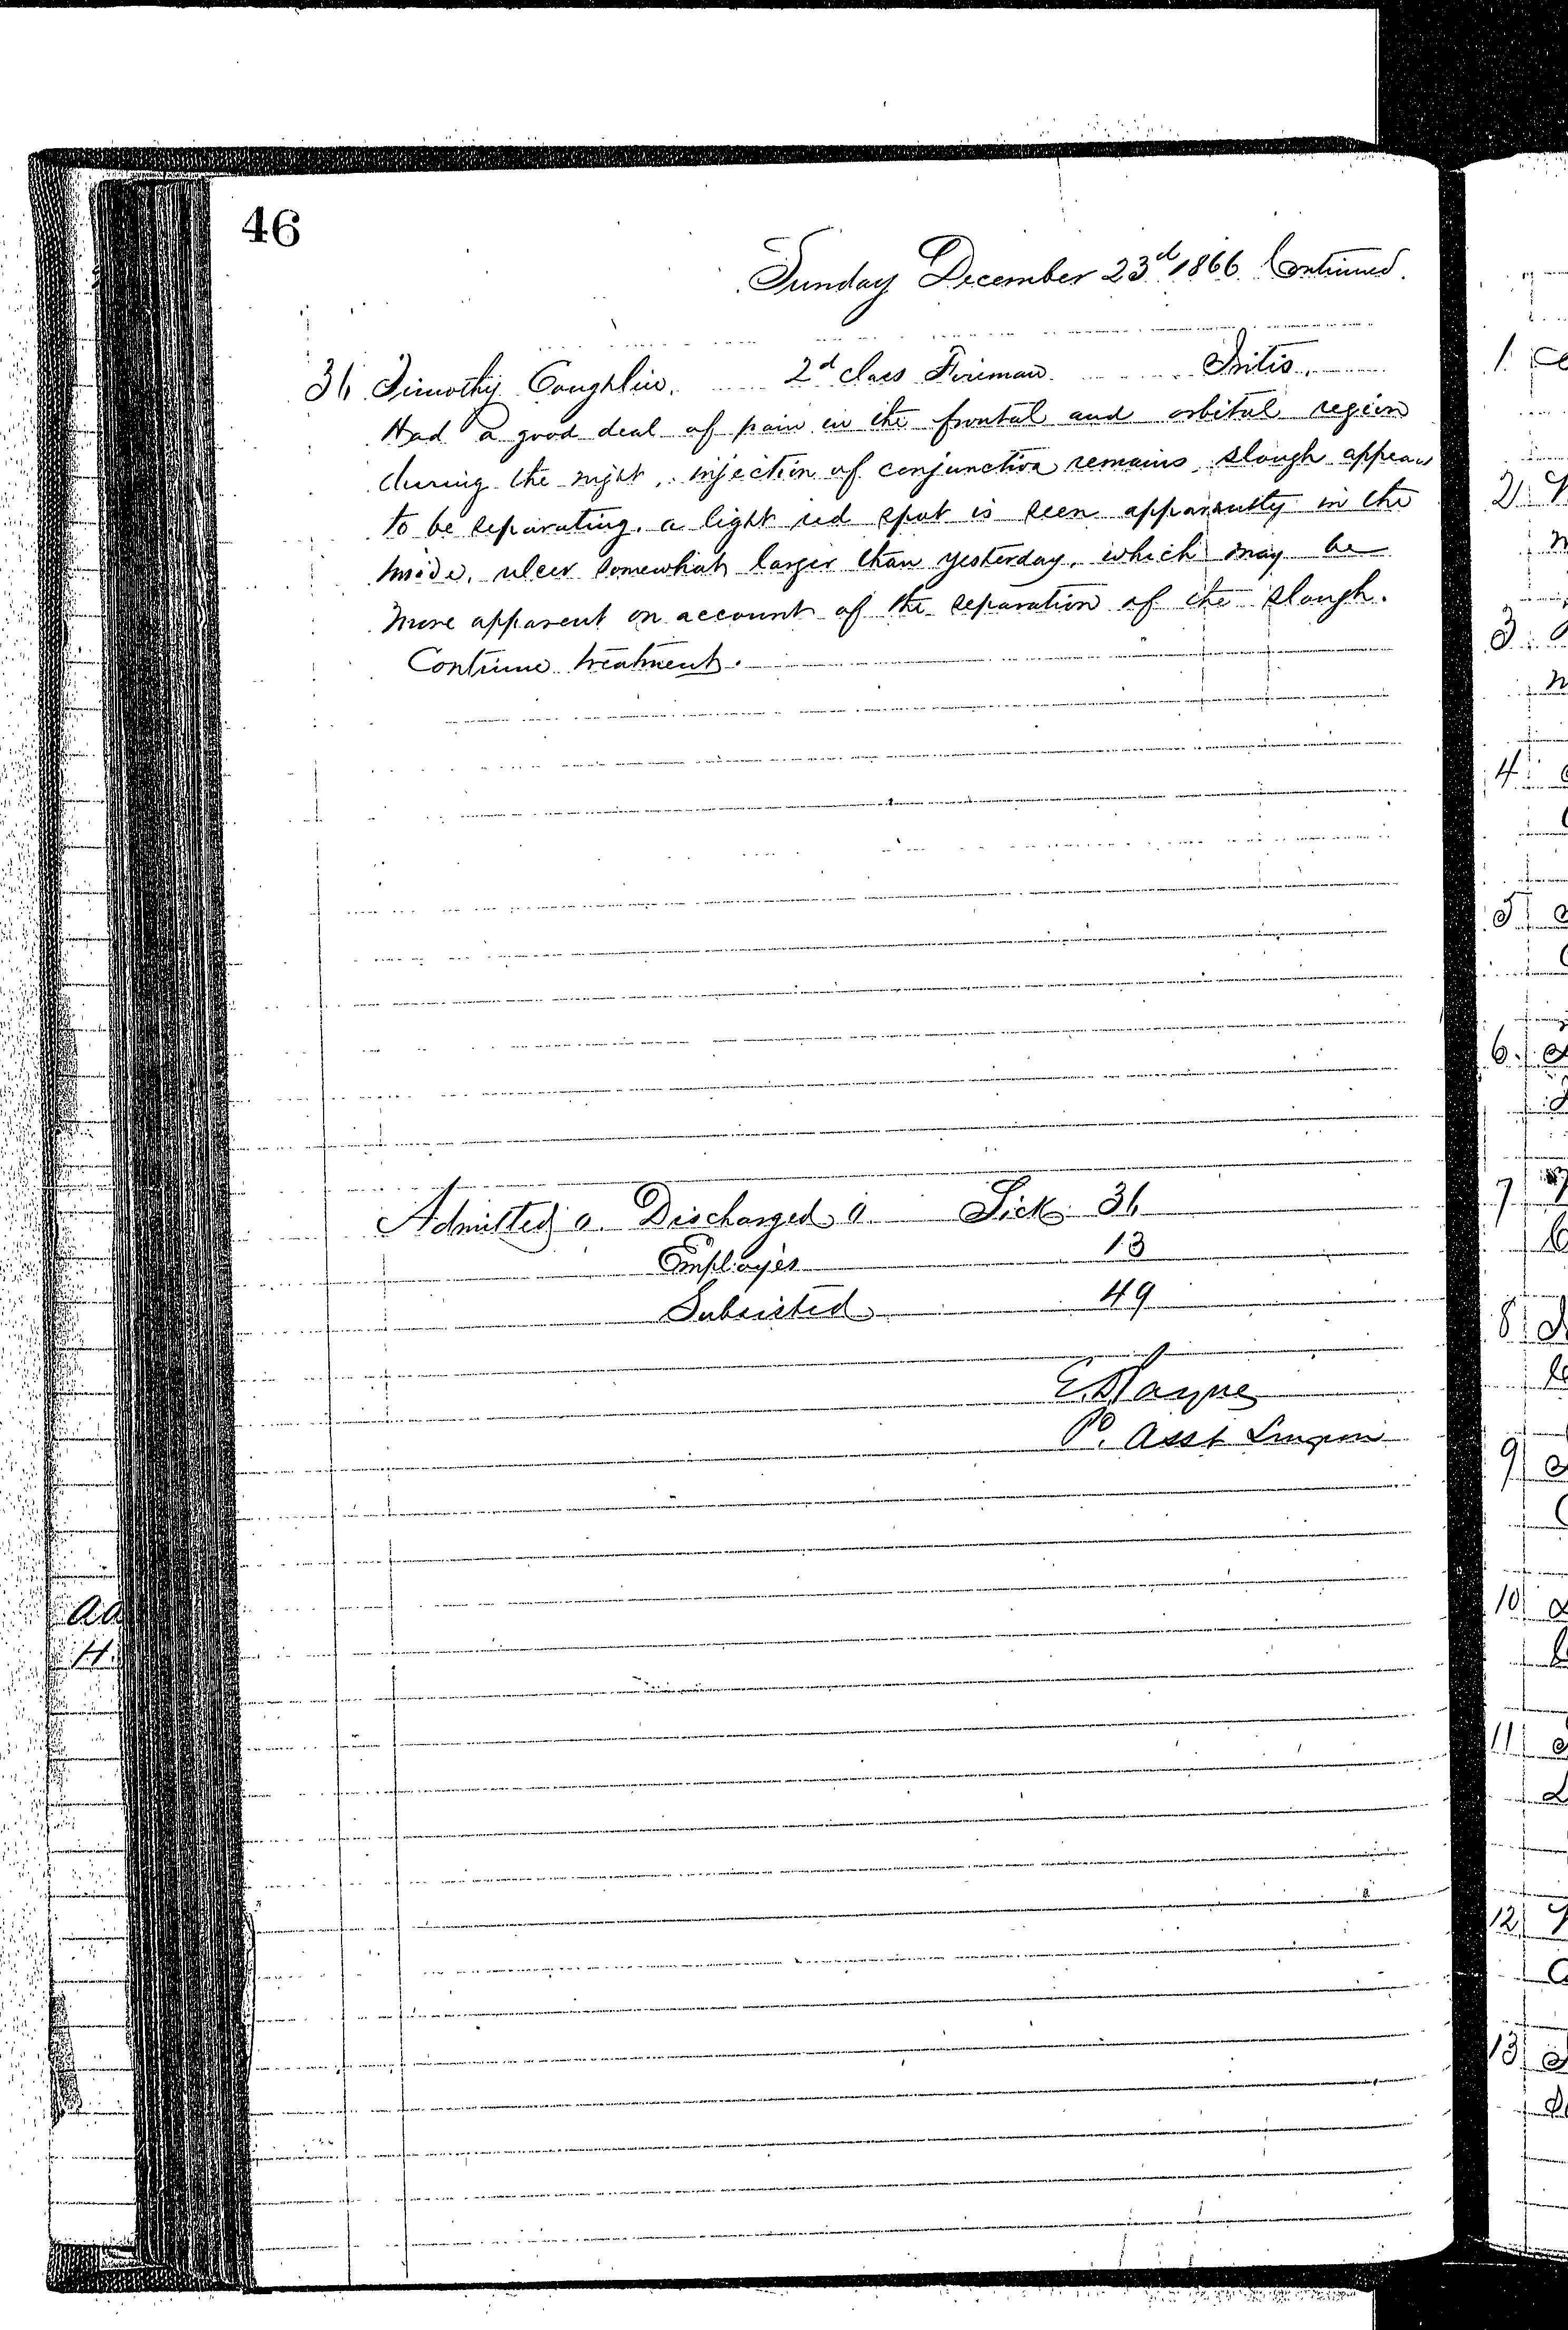 46
Sunday December 23d 1866 Continued.
36 Timothy Coughlin. 2d class Fireman Iritis.
Had a good deal of pain in the frontal and orbital region
during the night, injection of conjunctiva remains, slough appears
to be separating. a light red spot is seen apparantly in the
inside, ulcer somewhat larger than yesterday, which may be
more apparent on account of the separation of the slough.
Continue treatment.
Admitted 0. Discharged 0. Sick 36
Employés 13
Subsisted 49
Payne
Pd. Asst Surgeon
H.
1
2
3
4
5
6.
7
8
9
10
11
12
13